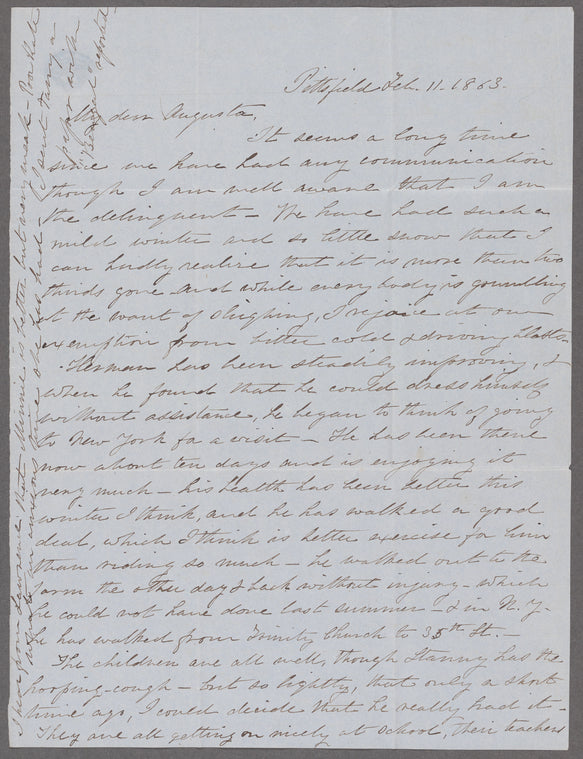 Pittsfield Feb. 11. 1863.
My dear Augusta,
It seems a long time
since we have had any communication
though I am well aware that I am
the delinquent – We have had such a
mild winter and so little snow that I
can hardly realize that it is more than two
thirds gone and while everybody is grumbling
at the want of sleighing, I rejoice at our
exemption from bitter cold & driving blasts –
Herman has been steadily improving, &
when he found that he could dress himself
without assistance, he began to think of going
to New York for a visit – He has been there
now about ten days and is enjoying it
very much – his health has been better this
winter I think, and he has walked a good
deal, which I think is better exercise for him
than riding so much – he walked out to the
farm the other day & back without injury – which
he could not have done last summer – & in N. Y.
he has walked from Trinity Church to 35th St. –
The children are all well, though Stanny has the
hooping-cough – but so lightly, that only a short
time ago, I could decide that he really had it –
They are all getting on nicely at school, their teachers
I hear from Lawrence that Minnie is better but very weak –
time she has had – I sent Fanny a
paper with
"Bengal" reported